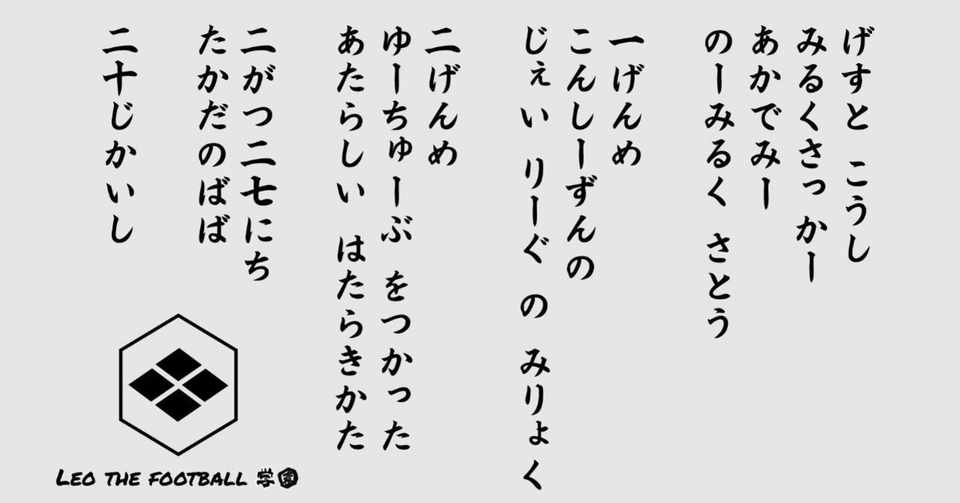 げすと こうし
みるくさっかー
あかでみー
のーみるく さとう
一げんめ
こんしーずんの
じぇい りーぐ の みりょく
二げんめ
ゆーちゅーぶ をつかった
あたらしい はたらきかた
二がつ二七にち
たかだのばば
二十じかいし
LEO THE FOOTBALL 学園